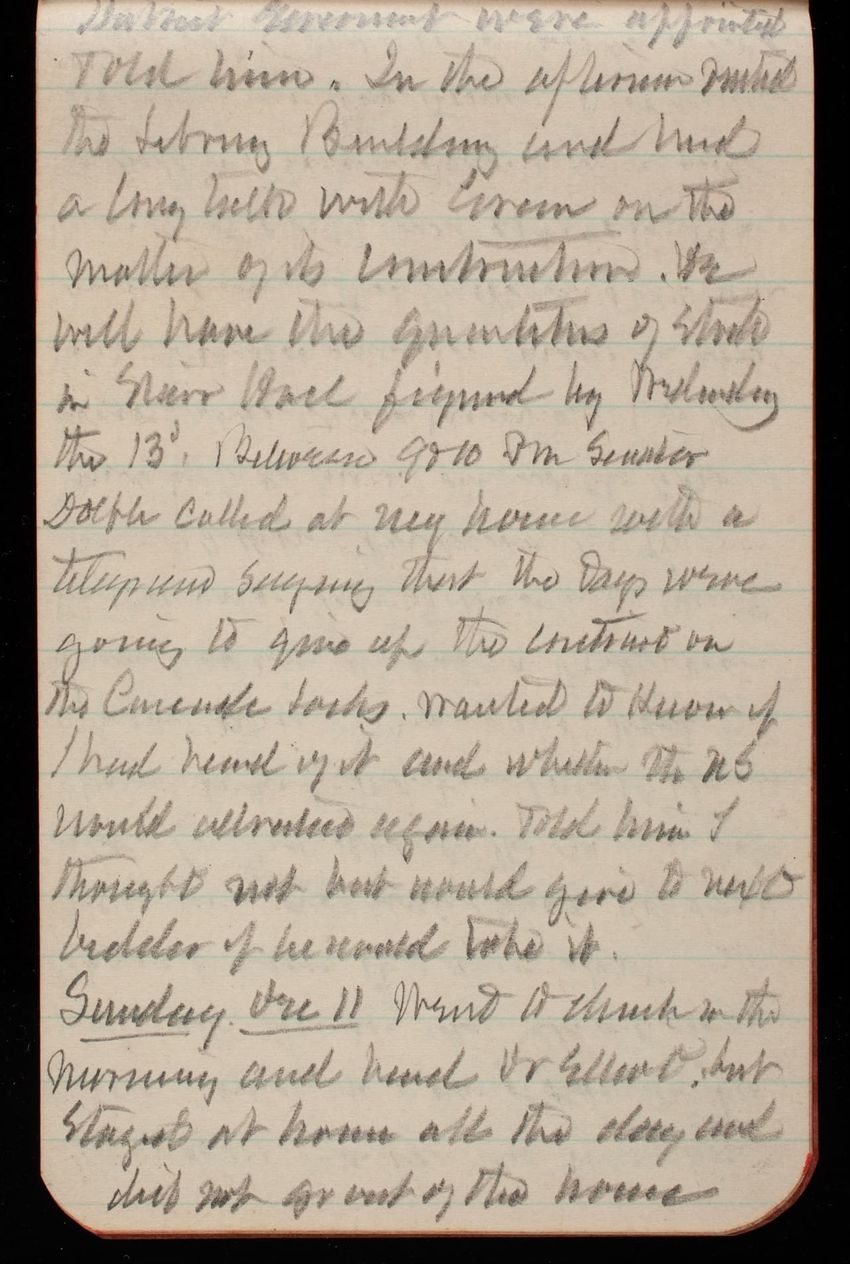 District Government were appointed
told him. In the afternoon visited
the Library Building and had
a long talk with Green on the
matter of its construction. He
will have the quantities of Steel
in Stair Hall figured by Wednesday
the 13d. Between 9 & 10 PM Senator
Dolph called at my house with a
telegram saying that the Days were
going to give up the contract on
the Cascade Locks. Wanted to know if
I had heard of it and whether the US
would advertise again. Told him I
thought not but would give to next
bidder if he would take it.
Sunday. Dec 11 Went to church in the
morning and heard Dr Elliott, but
Stayed at home all the day and
did not go out of the house